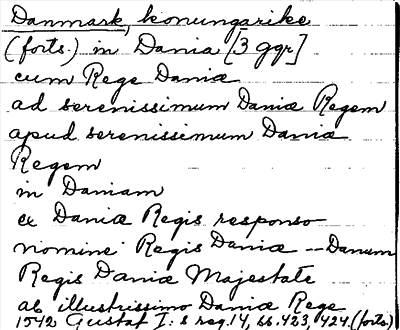 Danmark, konungarike
(forts.) in Dania [3 ggr]
cum Rege Daniæ
ad serenissimum Daniæ Regem
apud serenissimum Daniæ
Regem
in Daniam
ex Daniæ Regis responso
nomine Regis Daniæ -- Danum
Regis Daniæ Majestate
ab illustrissimo Daniæ Rege
1542 Gustaf I: s reg. 14, ss. 423, 424. (forts.)